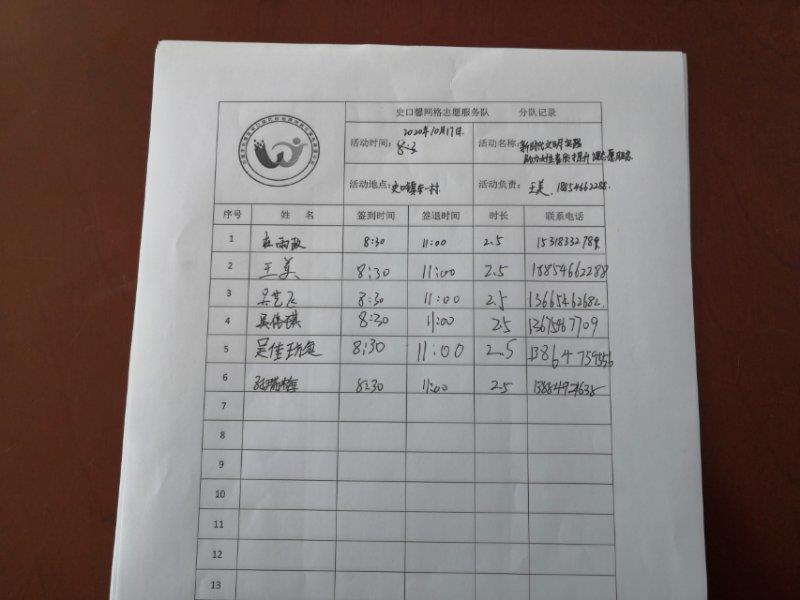 史口馨网格志愿服务队 分队记录
活动时间: 2020年10月17日.
8:3
活动名称: 新时代文明实践
助力女性素质提升 志愿服务
活动地点: 史口镇 一村
活动负责: 王美. 18854662288.
序号 姓 名 签到时间 签退时间 时长 联系电话
1 8:30 11:00 2.5
2 王美 8:30 11:00 2.5 18854662288
3 吴艺飞 8:30 11:00 2.5 13665462682.
4 吴伟琪 8:30 11:00 2.5
5 吴佳 8:30 11:00 2.5
6 8:30 11:00 2.5
7
8
9
10
11
12
13